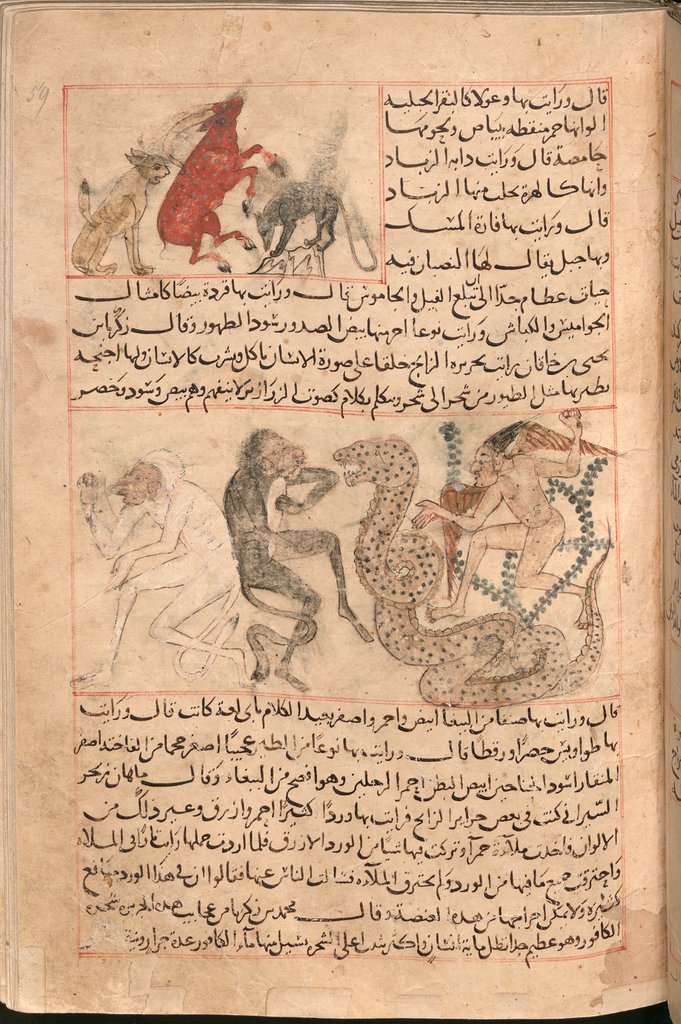 59
قال ورايت بها وعولا كالبقر الجبليه
الوانها حمر منقطه ببياض ولحومها
حامضة قال ورايت دابه الزباد
وانها كالهرة يحلب منها الزباد
قال ورايت بها فارة المسك
وبها جبل يقال لها النصبان فيه
حيات عظام جدا الى ان تبلع الفيل والجاموس قال ورايت بها قردة بيضا كامثال
الجواميس والكباش ورايت نوعا اخر منها بيض الصدور سود الظهور وقال زكريا بن
يحيى بن خاقان رايت بجزيره الزابج خلقا على صورة الانسان ياكل ويشرب كالانسان ولها اجنحه
يطير بها مثل الطيور من شجر الى شجر ويتكلم بكلام كصوت الزرازير لا يفهم وهم بيض وسود وخضر
قال ورايت بها صنفا من الببغا ابيض واحمر واصفر يعيد الكلام باى لغة كانت قال ورايت
بها طواويس خضرا ورقطا قال ورايت بها نوعا من الطير عجيبا اصغر حجما من الفاختة اصفر
المنقار اسود الجناحين ابيض البطن احمر الرجلين وهو افصح من الببغاء وقال ماهان بن بحر
السيرافى كنت فى بعض جزاير الزابج فرايت بها وردا كثيرا احمر وازرق وغير ذلك من
الالوان فاخذت ملاءة حمراء وتركت فيها شيا من الورد الازرق فلما اردت حملها رايت نارا فى الملاه
واحترقت جميع ما فيها من الورد ولم يحترق الملاه فسالت الناس عنها فقالوا ان فى هذا الورد منافع
كثيرة ولا يمكن اخراجها من هذه الغيضة وقال محمد بن زكريا من عجايب هذه الجزيره شجره
الكافور وهو عظيم جدا تظل ماية انسان واكثر يثقب اعلى الشجره يسيل منها ماء الكافور عدة جرار